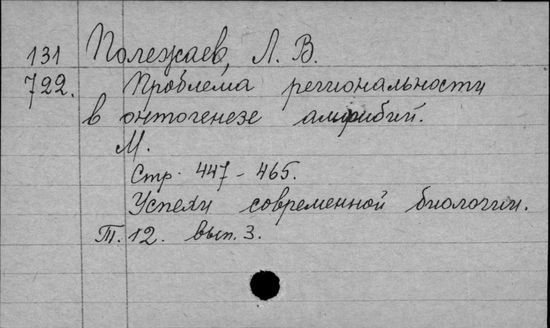 131 Полежаев, Л. В.
722. Проблема региональности
в онтогенезе амфибий.
М.
Стр. 447-465.
Успехи современной биологии.
Т. 12. вып. 3.